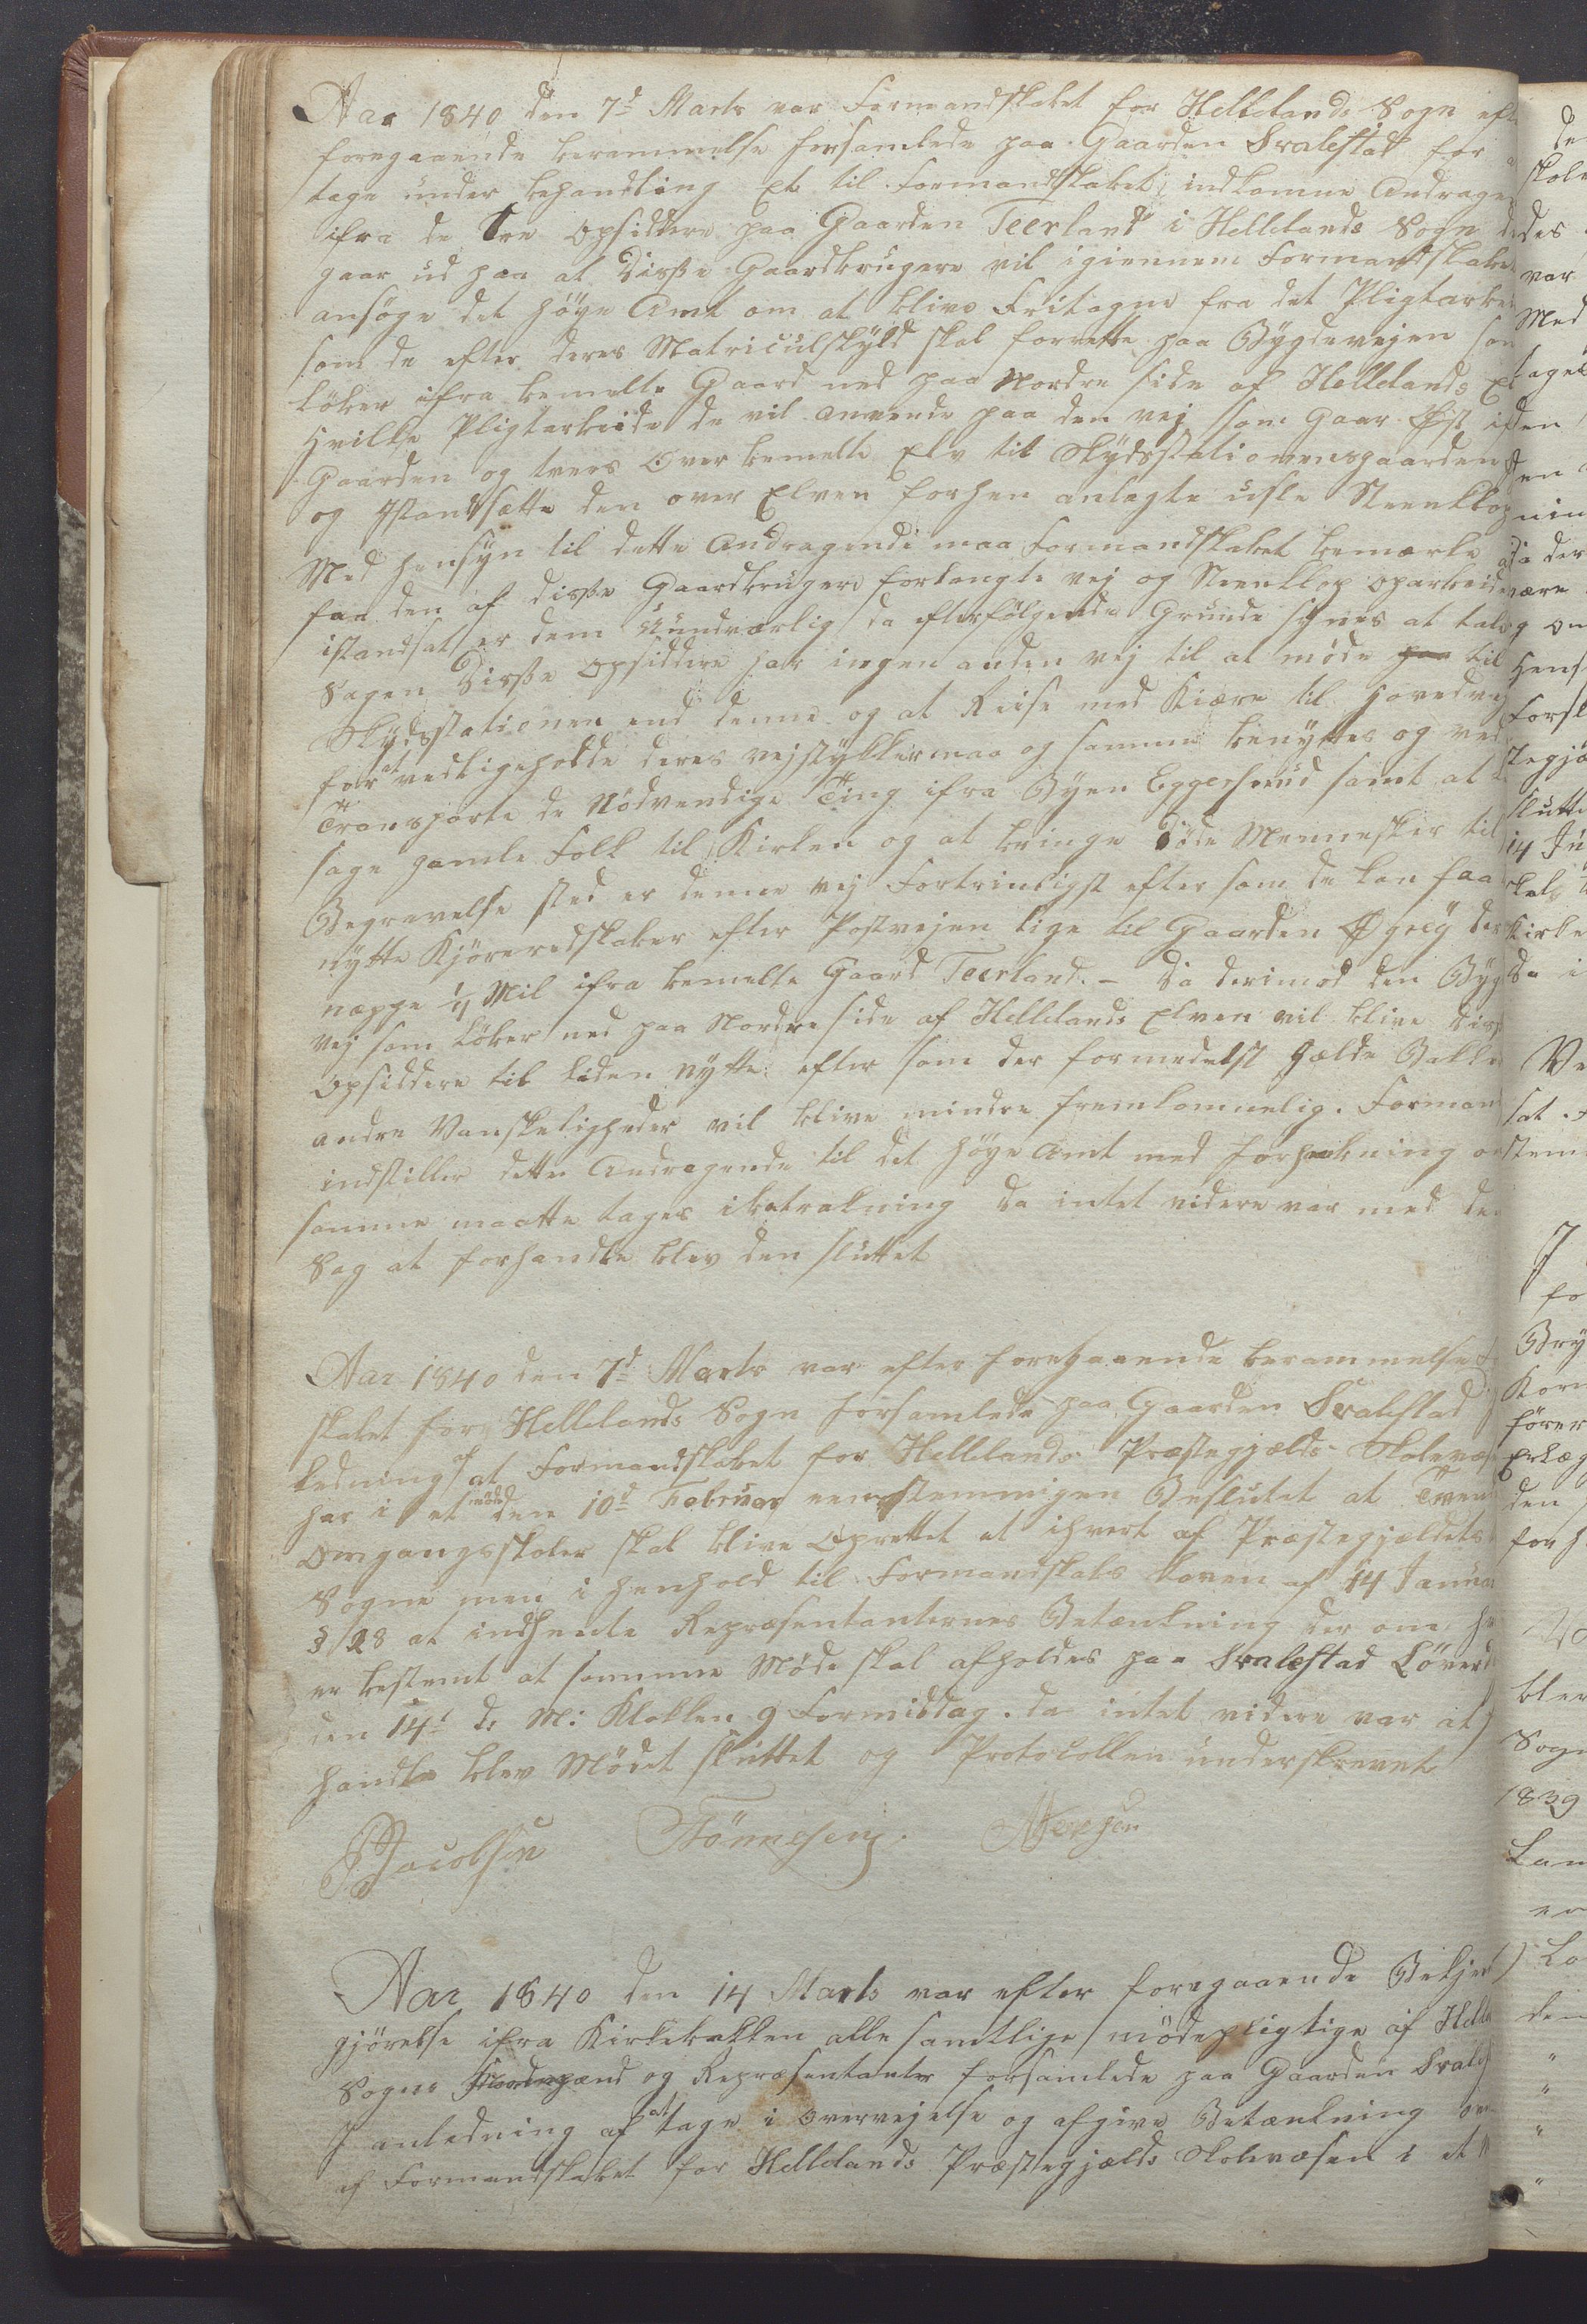 Aar 1840 den 7d Marts var Formandskabet for Hellelands Sogn eft
foregaaende berammelse forsamlede paa Gaarden Svalestad for a
tage under behandling Et til Formandskabet indkomne Andrage
ifra de tre Opsiddere paa Gaarden Teerland i Hellelands Sogn d
gaar ud paa at Disse Gaardbrugere vil igiennem Formandskabe
ansöge det höye Amt om at blive Fritagne fra det Pligtarbe
som de efter deres Matriculskÿld skal forrette paa Bÿgdevejen som
löber ifra bemelte Gaard ned paa Nordre side af Hellelands El
Hvilke Pligtarbeide de vil anvende paa den vej som gaar Øst if
Gaarden og tvers Over bemelte Elv til Skÿdsstationensgaarden
og Istandsætte den over Elven forhen anlagte usle Steenklop
Med Hensÿn til dette Andragende maa Formandskabet bemærke a
faa den af disse Gaardbrugere forlangte vej og Steenklop oparbeide
istandsat er dem Uundværlig da efterfölgende Grunde sÿnes at tale
Sagen Disse Opsiddere har ingen anden vej til at möde paa til
Skÿdsstationen end denne og at Reise med Kiære til Hovedvej
for at vedligeholde deres vejstÿkker maa og samme benÿttes og ved
Transporte de Nödvendige Ting ifra Bÿen Eggersund samt at
sage gamle Folk til Kirken og at bringe Döde Mennesker til
Begravelse sted er denne vej Fortrinligst efter som de kan faa
nÿtte Kjöreredskaber efter Postvejen lige til Gaarden Øgreÿ der
næppe 1/4 Mil ifra bemelte Gaard Teerland. – Da derimod den Bÿg
vej som Löber ned paa Nordre side af Hellelands Elven vil blive Diss
Opsiddere til liden nÿtte efter som der formedelst Hælde Bakke
andre Vanskeligheder vil blive mindre fremkommelig. Forman
indstiller dette Andragende til det höye Amt med forhaabning o
samme maatte tages ibetraktning Da intet videre var med de
Sag at forhandle blev den sluttet
Aar 1840 den 7d Marts var efter foregaaende berammelse
skabet for Hellelands Sogn forsamlede paa Gaarden Svalestad
ledning af at Formandskabet for Hellelands Præstegjælds Skolevæs
har i et möde den 10d Februar eenstemmigen Beslutet at Tven
Omgangsskoler skal blive Oprettet et ihvert af Præstegjældets
Sogne men i henhold til Formandskabs loven af 14 Janua
§ 28 at indhente Repræsentanternes Betænkning der om he
er bestemt at samme Möde skal afholdes paa Svalestad Löverd
den 14d d. M: Klokken 9 Formiddag. da intet videre var at
handle blev Mödet sluttet og Protocollen underskrevet
Jacobsen Tönnesen
Aar 1840 den 14 Marts var efter foregaaende Bekjent
gjörelse ifra Kirkebakken alle samtlige mödepligtige af Helle
Sogns Formænd og Repræsentanter forsamlede paa Gaarden Svales
I anledning af at tage i overvejelse og afgive Betænkning om
af Formandskabet for Hellelands Præstegjælds Skolevæsen i et